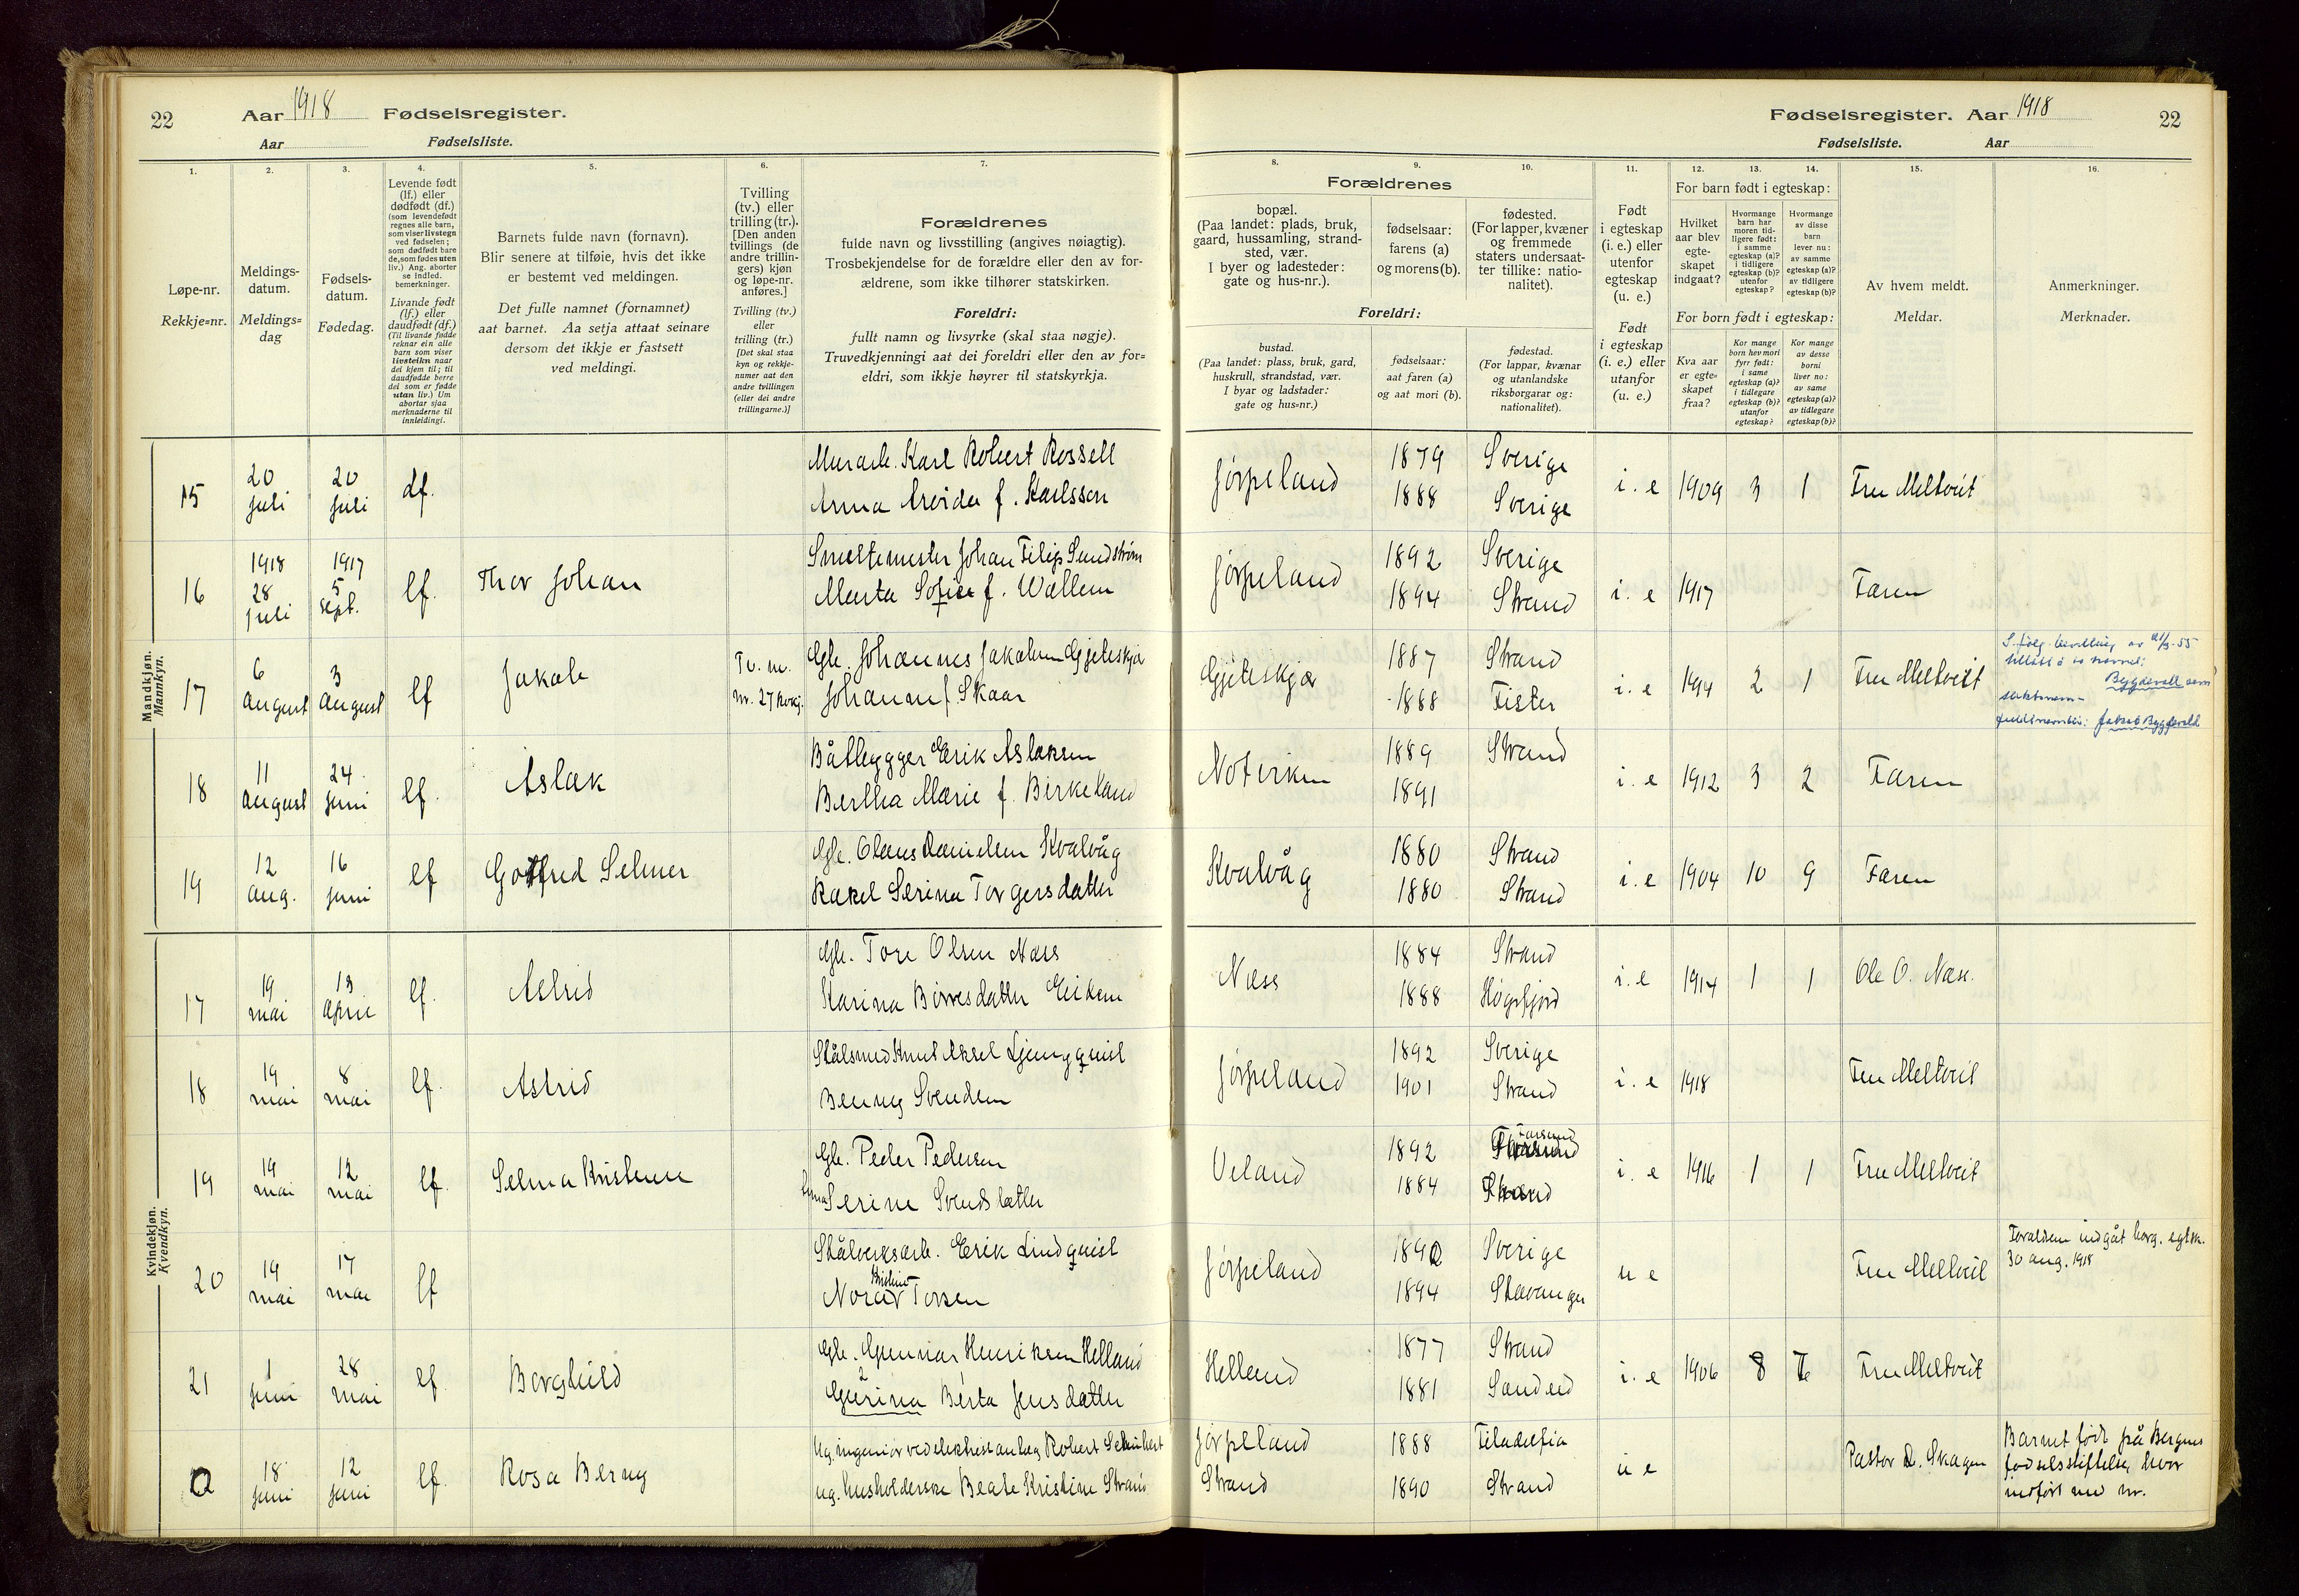 22
Aar 1918 Fødselsregister.
Aar Fødselsliste.
Fødselsregister. Aar 1918
22
Fødselsliste. Aar
1.
Løpe-nr.
Rekkje=nr.
2.
Meldings-
datum.
Meldings=
dag
3.
Fødsels-
datum.
Fødedag.
4.
Levende født
(lf.) eller
dødfødt (df.)
(som levendefødt
regnes alle barn,
som viser livstegn
ved fødselen;
som dødfødt bare
de, som fødes uten
liv.) Ang. aborter
se indled.
bemerkninger.
Livande født
(lf.) eller
daudfødt (df.)
(Til livande fødde
reknar ein alle
barn som viser
livsteikn naar
dei kjem til; til
daudfødde berre
dei som er fødde
utan liv.) Um
abortar sjaa
merknaderne til
innleidingi.
5.
Barnets fulde navn (fornavn).
Blir senere at tilføie, hvis det ikke
er bestemt ved meldingen.
Det fulle namnet (fornamnet)
aat barnet. Aa setja attaat seinare
dersom det ikkje er fastsett
ved meldingi.
6.
Tvilling
(tv.) eller
trilling (tr.).
[Den anden
tvillings (de
andre trillin-
gers) kjøn
og løpe-nr.
anføres.]
Tvilling (tv.)
eller
trilling (tr.)
[Det skal staa
kyn og rekkje-
numer aat den
andre tvillingen
(eller dei andre
trillingarne.)]
7.
Forældrenes
fulde navn og livsstilling (angives nøiagtig).
Trosbekjendelse for de forældre eller den av for-
ældrene, som ikke tilhører statskirken.
Foreldri:
fullt namn og livsyrke (skal staa nøgje).
Truvedkjenningi aat dei foreldri eller den av for=
eldri, som ikkje høyrer til statskyrkja.
Forældrenes
8.
bopæl.
(Paa landet: plads, bruk,
gaard, hussamling, strand-
sted, vær.
I byer og ladesteder:
gate og hus-nr.).
9.
fødselsaar:
farens (a)
og morens (b).
10.
fødested.
(For lapper, kvæner
og fremmede
staters undersaat-
ter tillike: natio-
nalitet).
Foreldri:
bustad.
(Paa landet: plass, bruk, gard,
huskrull, strandstad, vær.
I byar og ladstader:
gate og hus=nr.)
fødselsaar:
aat faren (a)
og aat mori (b).
fødestad.
(For lappar, kvænar
og utanlandske
riksborgarar og:
nationalitet).
11.
Født
i egteskap
(i. e.) eller
utenfor
egteskap
(u. e.)
Født
i egteskap
(i. e.) eller
utanfor
(u. e.)
12. 13. 14.
For barn født i egteskap:
Hvilket
aar blev
egte-
skapet
indgaat?
Hvormange
barn har
moren tid-
ligere født:
i samme
egteskap (a)?
i tidligere
egteskap (b)?
utenfor
egteskap?
Hvormange
av disse
barn
lever nu:
av samme
egteskap (a)?
av tidligere
egteskap (b)?
For born født i egteskap:
Kva aar
er egte=
skapet
fraa?
Kor mange
born hev mori
fyrr født:
i same
egteskap (a)?
i tidlegare
egteskap (b)?
utanfor
egteskap?
Kor mange
av desse
borni
liver no:
av same
egteskap (a)?
av tidlegare
egteskap (b)?
15.
Av hvem meldt.
Meldar.
16.
Anmerkninger.
Merknader.
Mandkjøn.
Mannkyn.
15 20 juli 20 juli df. Murarb. Karl Robert Rossell
Anna Arvida f. Karlsson
Jørpeland 1879 1888 Sverige Sverige i. e 1909 3 1 Fru Meltveit
16 1918 28 juli 1917 5 sept. lf. Thor Johan Smeltemester Johan Filip Sundstrøm
Marta Sofie f. Wallem
Jørpeland 1892 1894 Sverige Strand i. e 1917 Faren
17 6 August 3 August lf Jakob Tv. m. nr. 27 kvkj. Gbr. Johannes Jakobsen Gjeteskjær
Johanne f. Skaar
Gjeteskjær 1887 1888 Strand Fister i. e 1914 2 1 Fru Meltveit
Bygdevoll som
Jakob Bygdevoll
18 11 August 24 juni lf. Aslak Båtbygger Erik Aslaksen
Bertha Marie f. Birkeland
Notvikn 1889 1891 Strand i. e 1912 3 2 Faren
19 12 aug. 16 juni lf Gotfred Selmer Gbr. Olaus Danielsen Kvalvåg
Rakel Serina Torgersdatter
Kvalvåg 1880 1880 Strand Strand i. e 1904 10 9 Faren
Kvindekjøn.
Kvendkyn.
17 19 mai 13 April lf. Astrid Gbr. Tore Olsen Næss
Karina Børresdatter Eiken
Næss 1884 1888 Strand Høgsfjord i. e 1914 1 1 Ole O. Næss.
18 19 mai 8 mai lf. Astrid Stålsmed Knut Aksel Ljungquist
Benny Svendsen
Jørpeland 1892 1901 Sverige Strand i. e 1918 Fru Meltveit
19 19 mai 12 mai lf. Selma Kristine Gbr. Peder Pedersen
Serine Svendsdatter
Veland 1892 1884 Forsand Strand i. e 1916 1 1 Fru Meltveit
20 19 mai 17 mai lf Stålverksarb. Erik Lindquist
Nora Kristine Torsen
Jørpeland 1892 1894 Sverige Stavanger u e Fru Meltveit
Foreldrene indgåt borg. egtsk.
30 aug. 1918
21 1 juni 28 mai lf. Borghild Gbr. Gunnar Henriksen Helland
Gurina Berta Jensdatter
Helland 1877 1881 Strand Sandeid i. e 1906 8 7 Fru Meltveit
0 18 juni 12 juni lf. Rosa Berny Ug. ingeniør ved elektrisk anlæg Robert Schubert
ug. husholderske Beate Kristine Strand
Jørpeland Strand 1888 1890 Filadelfia Strand u e Pastor D. Skagen
Barnet født på Bergens
fødselsstiftelse, hvor
indført med nr.